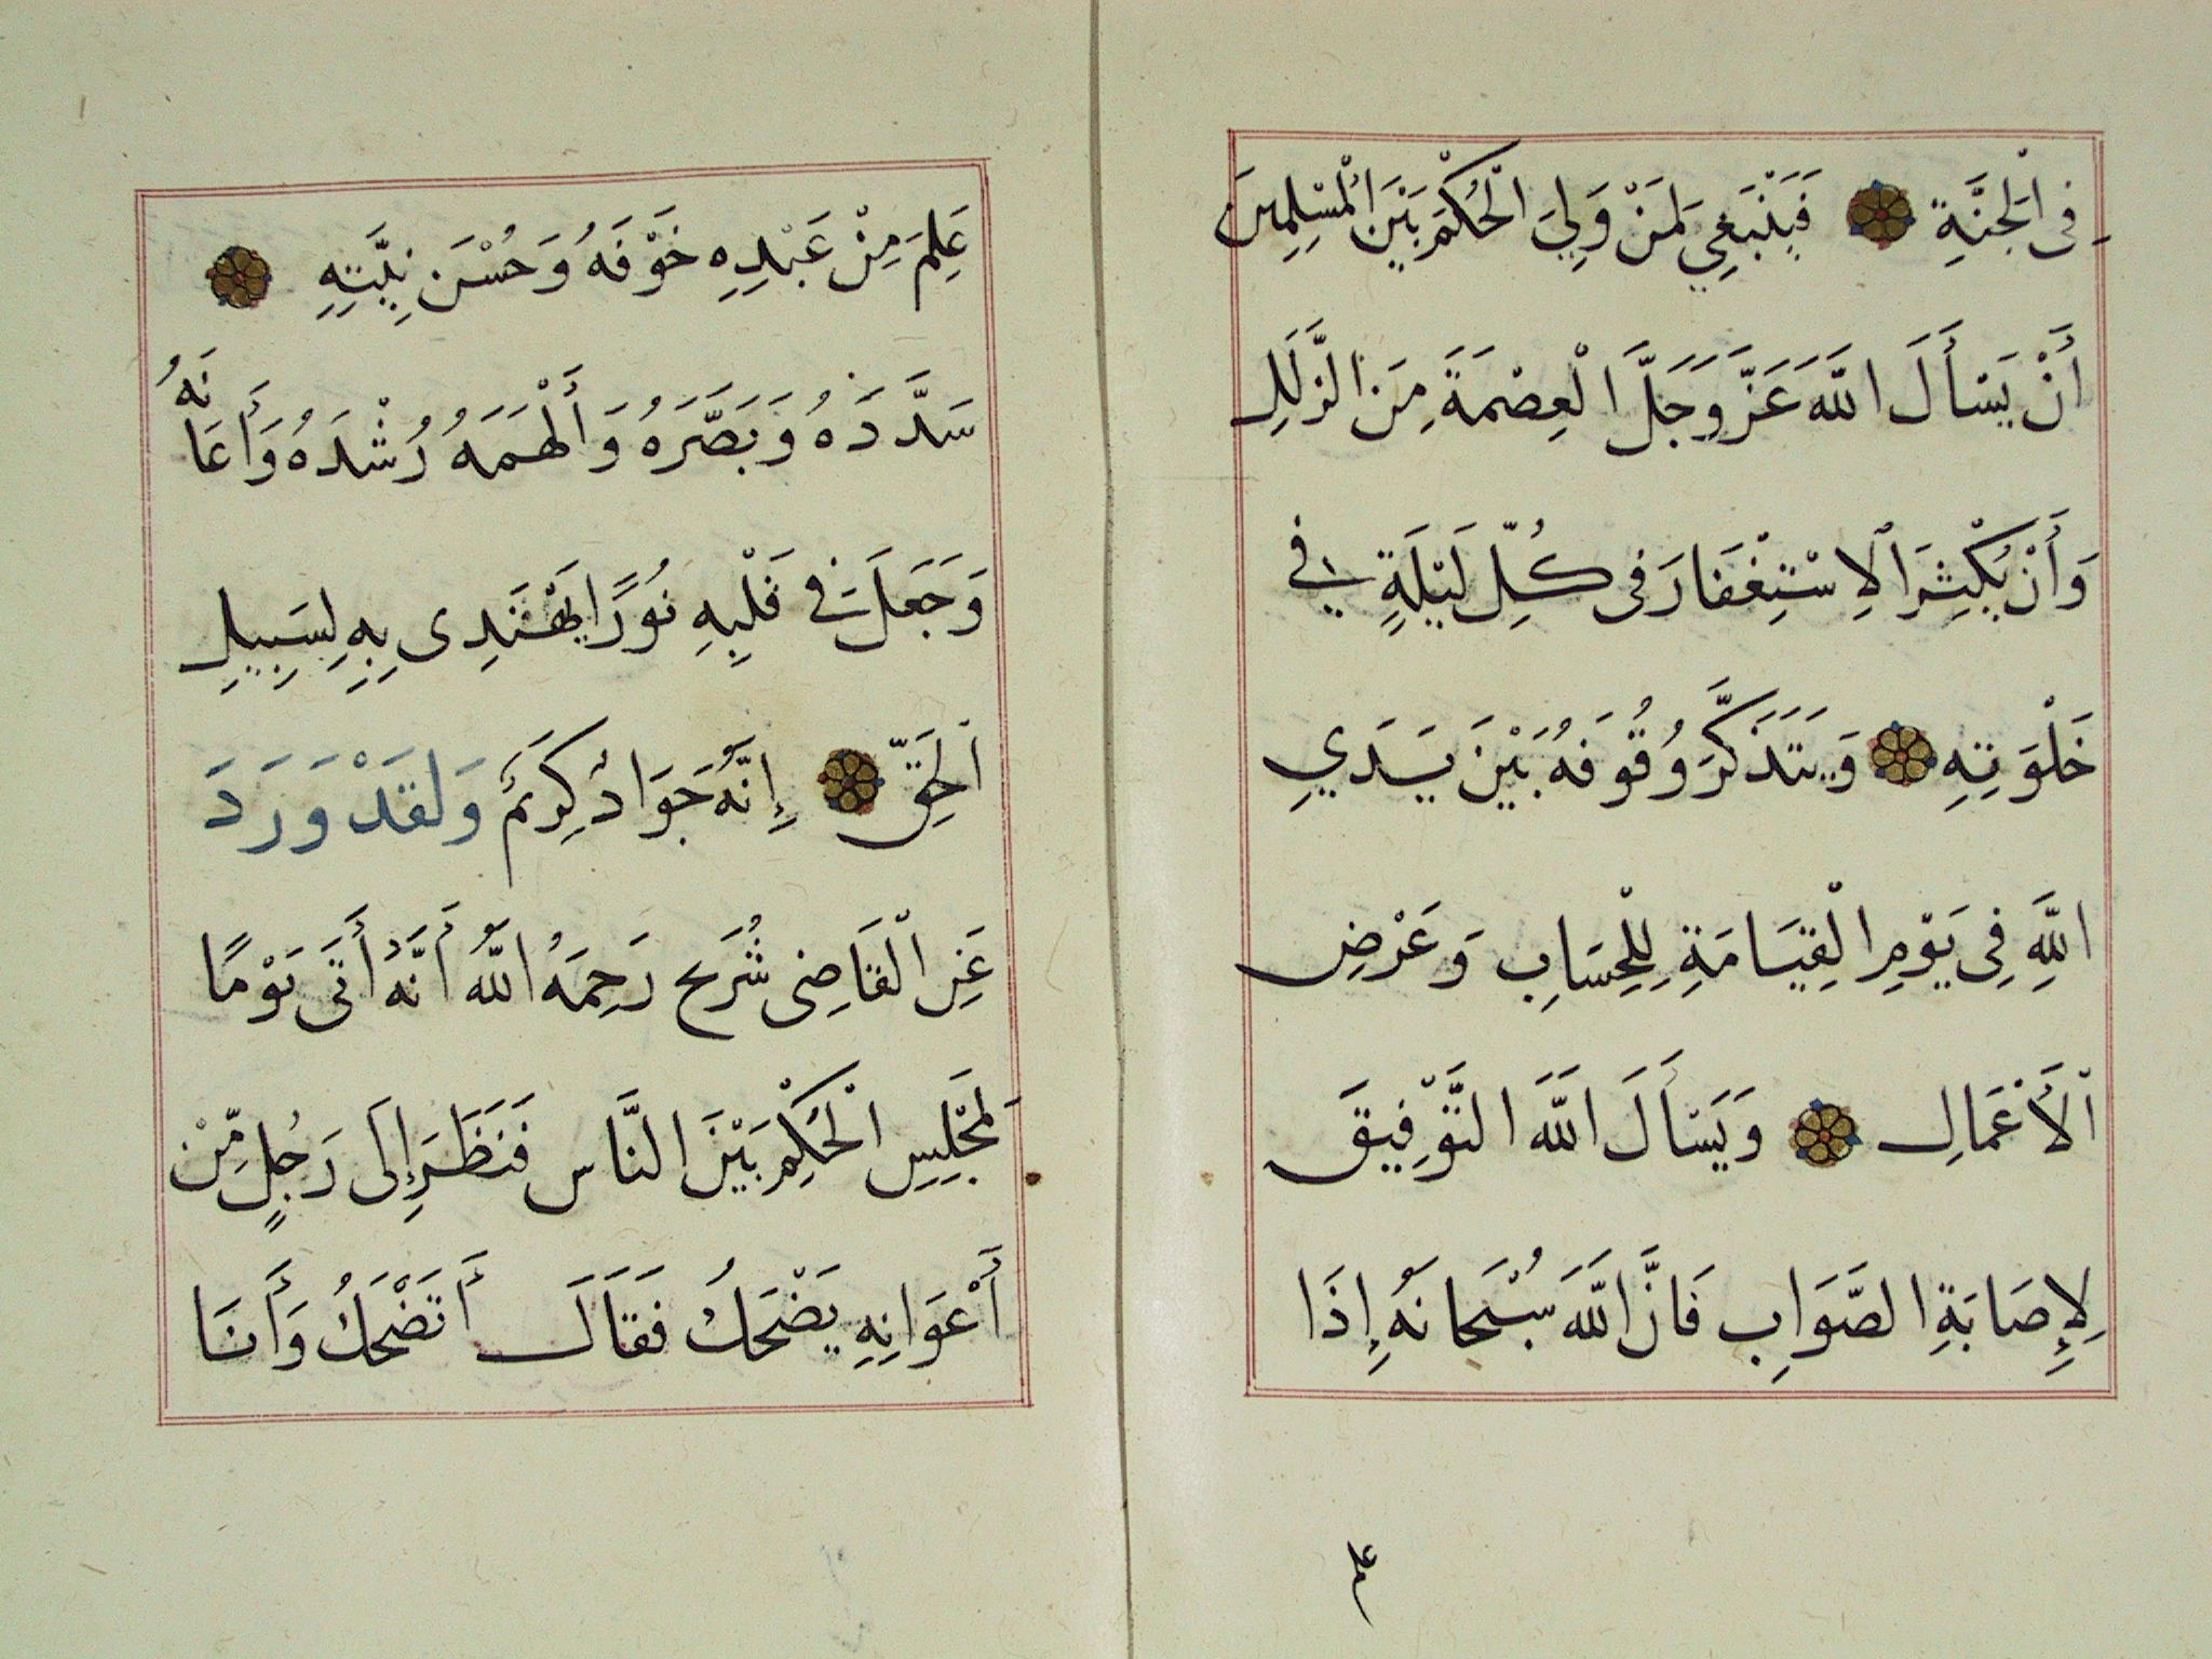 فِى الْجَنَّةِ فَيَنْبَغِي لِمَنْ وَلِيَ الْحُكْمَ بَيْنَ الْمُسْلِمِينَ
أَنْ يَسْأَلَ اللَّهَ عَزَّ وَجَلَّ الْعِصْمَةَ مِنَ الزَّلَلِ
وَأَنْ يُكْثِرَ الْاِسْتِغْفَارَ فِى كُلِّ لَيْلَةٍ فِي
خَلْوَتِهِ وَيَتَذَكَّرَ وُقُوفَهُ بَيْنَ يَدَيِ
اللَّهِ فِى يَوْمِ الْقِيَامَةِ لِلْحِسَابِ وَعَرْضِ
الْأَعْمَالِ وَيَسْأَلَ اللَّهَ التَّوْفِيقَ
لِإِصَابَةِ الصَّوَابِ فَانَّ اللَّهَ سُبْحَانَهُ إِذَا
علم
عَلِمَ مِنْ عَبْدِهِ خَوْفَهُ وَحُسْنَ نِيَّتِهِ
سَدَّدَهُ وَبَصَّرَهُ وَأَلْهَمَهُ رُشْدَهُ وَأَعَانَهُ
وَجَعَلَ فِي قَلْبِهِ نُورًا يَهْتَدِى بِهِ لِسَبِيلِ
الْحَقِّ إِنَّهُ جَوَادٌ كَرِيمٌ وَلَقَدْ وَرَدَ
عَنِ الْقَاضِى شُرَيح رَحِمَهُ اللَّهُ أَنَّهُ أَتَى يَوْمًا
لِمَجْلِسِ الْحُكْمِ بَيْنَ النَّاسِ فَنَظَرَ إِلَى رَجُلٍ مِّنْ
أَعْوَانِهِ يَضْحَكُ فَقَالَ أَتَضْحَكُ وَأَنَا